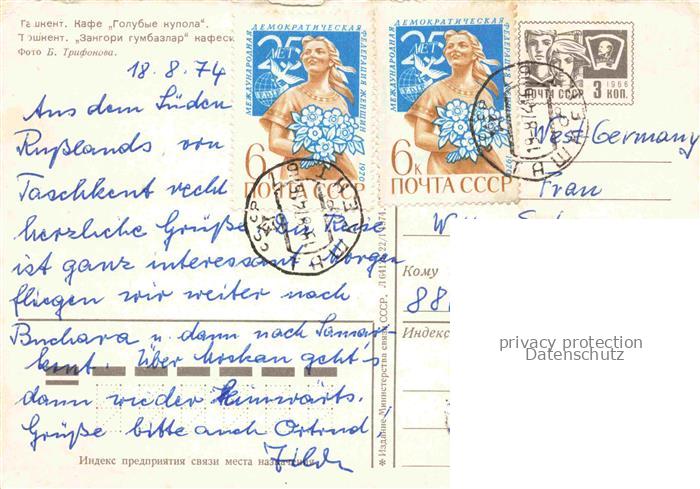 Ташкент. Кафе „Голубые купола".
Тошкент. „Зангори гумбазлар" кафеси
Фото Б. Трифонова.
18.8.74
Aus dem Süden
Rußlands, von
Taschkent recht
herzliche Grüße. Die Reise
ist ganz interessant. Morgen
fliegen wir weiter nach
Buchara u. dann nach Samar-
kant. Über Moskau geht's
dann wieder Heimwärts.
Grüße bitte auch Ortrud
Индекс предприятия связи места назначения
* Издание Министерства связи СССР.
МЕЖДУНАРОДНАЯ ДЕМОКРАТИЧЕСКАЯ ФЕДЕРАЦИЯ ЖЕНЩИН
25 ЛЕТ
1970
6к
ПОЧТА СССР
МЕЖДУНАРОДНАЯ ДЕМОКРАТИЧЕСКАЯ ФЕДЕРАЦИЯ ЖЕНЩИН
25 ЛЕТ
1970
6к
ПОЧТА СССР
1966
ПОЧТА СССР 3 КОП.
West Germany
Frau
Кому
88
Индекс
privacy protection
Datenschutz